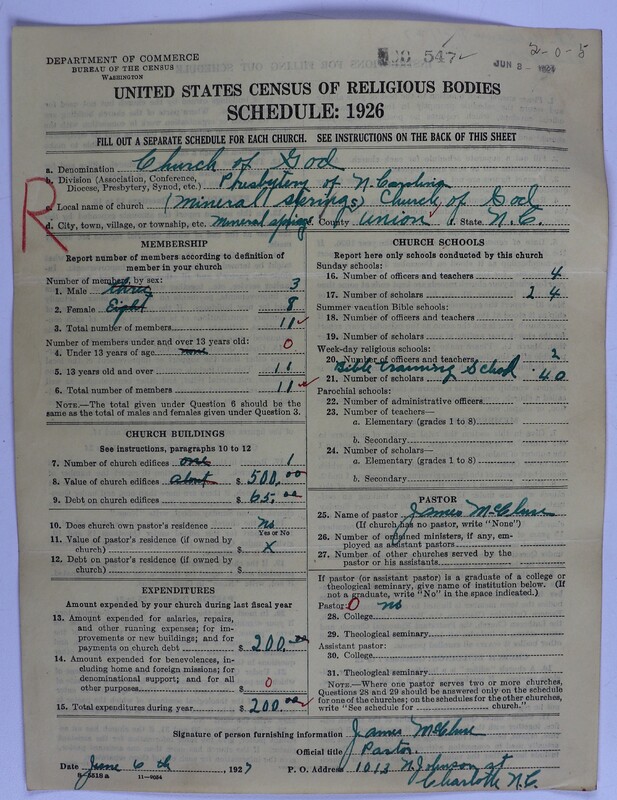 2-0-5
DEPARTMENT OF COMMERCE
BUREAU OF THE CENSUS
WASHINGTON
547
JUN 8 -
UNITED STATES CENSUS OF RELIGIOUS BODIES
SCHEDULE: 1926
FILL OUT A SEPARATE SCHEDULE FOR EACH CHURCH. SEE INSTRUCTIONS ON THE BACK OF THIS SHEET
R
a. Denomination Church of God
b. Division (Association, Conference,
Diocese, Presbytery, Synod, etc.) Presbytery of N. Carolina
c. Local name of church (Mineral Springs) Church of God
d. City, town, village, or township, etc. Mineral springs County Union State N.C.
MEMBERSHIP
Report number of members according to definition of
member in your church
Number of members by sex:
1. Male three 3
2. Female Eight 8
3. Total number of members 11
Number of members under and over 13 years old:
4. Under 13 years of age none 0
5. 13 years old and over 11
6. Total number of members 11
NOTE.—The total given under Question 6 should be the
same as the total of males and females given under Question 3.
CHURCH BUILDINGS
See instructions, paragraphs 10 to 12
7. Number of church edifices one 1
8. Value of church edifices about $ 500.00
9. Debt on church edifices $ 65.00
10. Does church own pastor's residence No
Yes or No
11. Value of pastor's residence (if owned by
church) $ X
12. Debt on pastor's residence (if owned by
church) $
EXPENDITURES
Amount expended by your church during last fiscal year
13. Amount expended for salaries, repairs,
and other running expenses; for im-
provements or new buildings; and for
payments on church debt $ 200.00
14. Amount expended for benevolences, in-
cluding home and foreign missions; for
denominational support; and for all
other purposes $ 0
15. Total expenditures during year $ 200.00
CHURCH SCHOOLS
Report here only schools conducted by this church
Sunday schools:
16. Number of officers and teachers 4
17. Number of scholars 24
Summer vacation Bible schools:
18. Number of officers and teachers
19. Number of scholars
Week-day religious schools:
20. Number of officers and teachers 2
Bible training School
21. Number of scholars 40
Parochial schools:
22. Number of administrative officers
23. Number of teachers—
a. Elementary (grades 1 to 8)
b. Secondary
24. Number of scholars—
a. Elementary (grades 1 to 8)
b. Secondary
PASTOR
25. Name of pastor James McClure
(If church has no pastor, write "None")
26. Number of ordained ministers, if any, em-
ployed as assistant pastors
27. Number of other churches served by the
pastor or his assistants
If pastor (or assistant pastor) is a graduate of a college or
theological seminary, give name of institution below. (If
not a graduate, write "No" in the space indicated.)
Pastor: 0 no
28. College
29. Theological seminary
Assistant pastor:
30. College
31. Theological seminary
NOTE.—Where one pastor serves two or more churches,
Questions 28 and 29 should be answered only on the schedule
for one of the churches; on the schedules for the other churches,
write "See schedule for church."
Signature of person furnishing information James McClure
Official title Pastor
Date June 6th, 1927 P. O. Address 1013 N Johnson st
8-5518a 11-9054 Charlotte N.C.